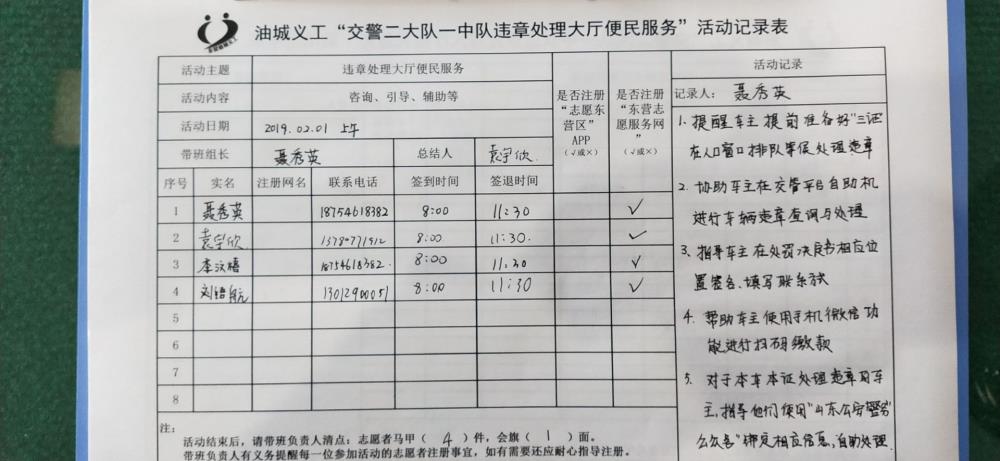 油城义工“交警二大队一中队违章处理大厅便民服务”活动记录表
活动主题 违章处理大厅便民服务
活动内容 咨询、引导、辅助等
活动日期 2019.02.01 上午
带班组长 聂秀英 总结人 袁宇欣
是否注册“志愿东营区”APP（√或×）
是否注册“东营志愿服务网”（√或×）
序号 实名 注册网名 联系电话 签到时间 签退时间
1 聂秀英 18754618382 8:00 11:30 √
2 袁宇欣 8:00 11:30. √
3 李汶禧 18754618382. 8:00 11:30 √
4 刘锴航 13012900051 8:00 11:30 √
5
6
7
8
注：
活动结束后，请带班负责人清点：志愿者马甲（ 4 ）件，会旗（ 1 ）面。
带班负责人有义务提醒每一位参加活动的志愿者注册事宜，如有需要还应耐心指导注册。
活动记录
记录人：聂秀英
1. 提醒车主提前准备好“三证
在人口窗口排队等候处理违章
2. 协助车主在交管平台自助机
进行车辆违章查询与处理
3. 指导车主在处罚决定书相应位
置签名、填写联系方式
4. 帮助车主使用手机微信功
能进行扫码缴款
5. 对于本车本证处理违章的车
主，指导他们使用“山东公安警务
公众号”绑定相应信息，自助处理